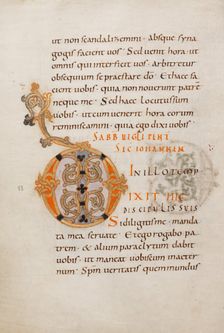 ut non scandalizemini. absque syna
gogis facient vos. Sed venit hora. ut
omnis qui interficit vos. arbitretur
obsequium se praestare do. Et haec fa
cient vobis. quia non noverunt patre
neque me. Sed haec locutus sum
vobis. ut cum venerit hora eorum
reminiscamini. quia ego dixi vobis.
SABB
SEC IOHANNEM
IN ILLO TEMP
DIXIT IHC
DISCIPULIS SUIS
Si diligitis me. manda
ta mea servate. Et ego rogabo pa
trem. & alium paraclytum dabit
vobis. ut maneat vobiscum in aeter
num. Spm veritatis quem mundus